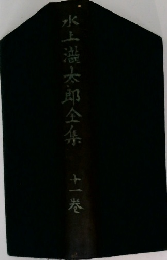 水上瀧太郎全集
十一巻